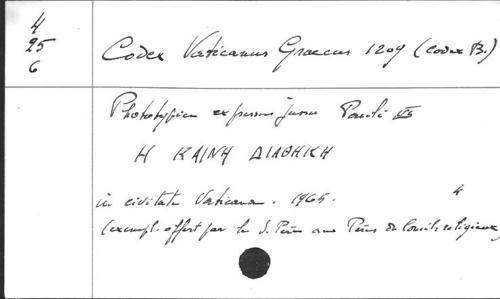 4
25
6
Codex Vaticanus Graecus 1209 (Codex B.)
Phototypice expressus jussu Pauli VI
Η ΚΑΙΝΗ ΔΙΑΘΗΚΗ
in civitate Vaticana. 1965. 4
(exempl. offert par le S. Père aux Pères du Concile